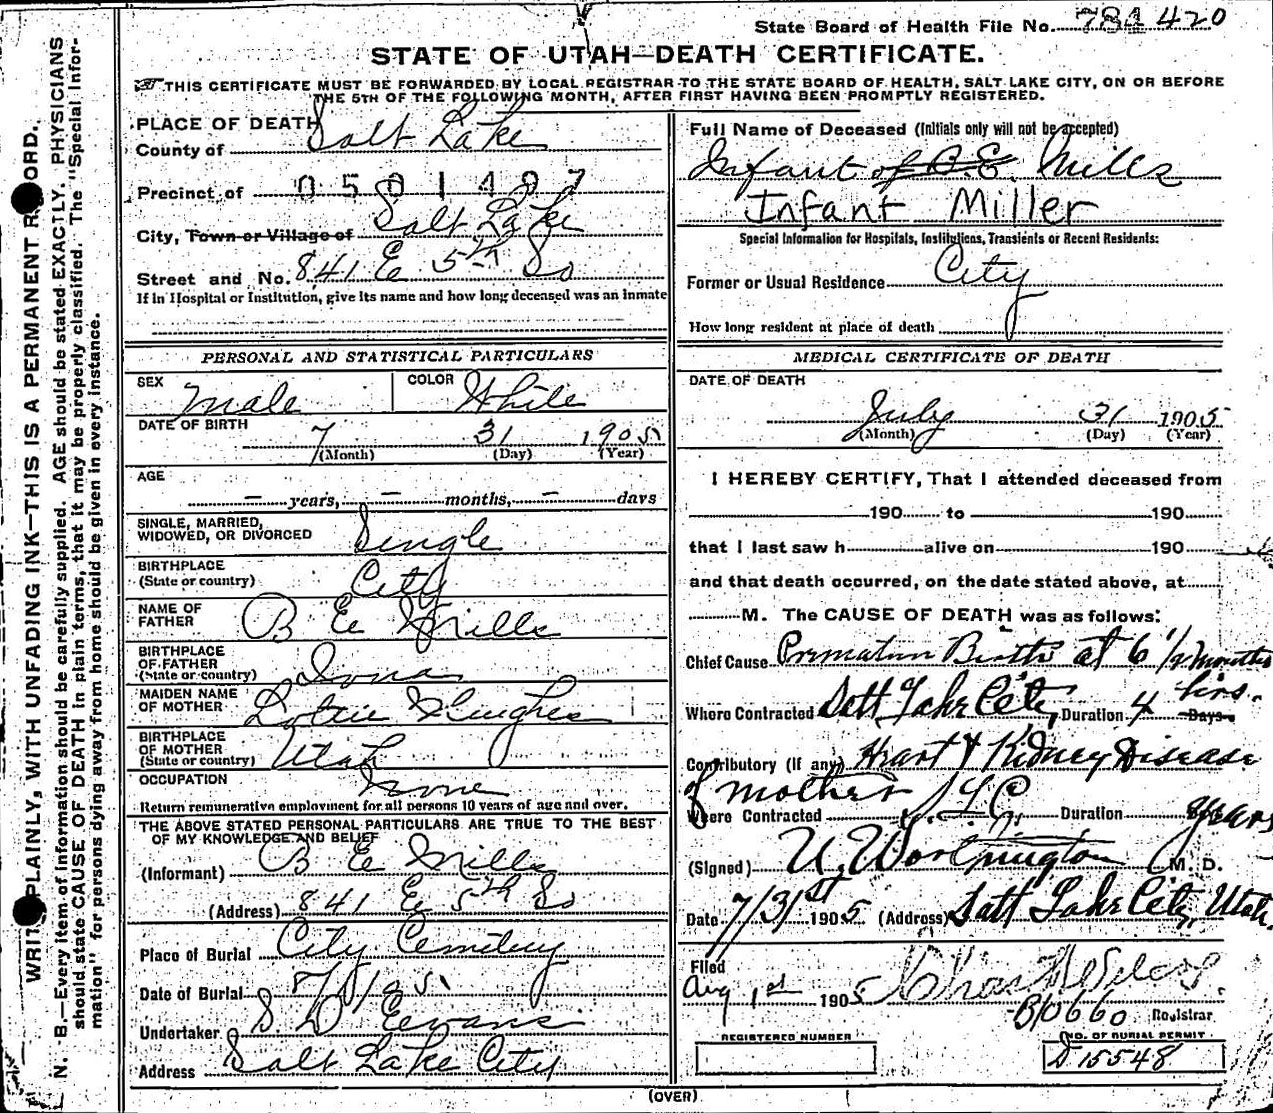 State Board of Health File No. 784 420
STATE OF UTAH—DEATH CERTIFICATE.
THIS CERTIFICATE MUST BE FORWARDED BY LOCAL REGISTRAR TO THE STATE BOARD OF HEALTH, SALT LAKE CITY, ON OR BEFORE
THE 5TH OF THE FOLLOWING MONTH, AFTER FIRST HAVING BEEN PROMPTLY REGISTERED.
WRITE PLAINLY, WITH UNFADING INK—THIS IS A PERMANENT RECORD.
N. B.—Every item of information should be carefully supplied. AGE should be stated EXACTLY. PHYSICIANS
should state CAUSE OF DEATH in plain terms, that it may be properly classified. The "Special Infor-
mation" for persons dying away from home should be given in every instance.
PLACE OF DEATH
County of Salt Lake
Precinct of 0501497
City, Town or Village of Salt Lake
Street and No. 841 E 5th So
If in Hospital or Institution, give its name and how long deceased was an inmate
PERSONAL AND STATISTICAL PARTICULARS
SEX Male COLOR White
DATE OF BIRTH
7 31 1905
(Month) (Day) (Year)
AGE
— years, — months, — days
SINGLE, MARRIED,
WIDOWED, OR DIVORCED Single
BIRTHPLACE
(State or country) City
NAME OF
FATHER B E Mills
BIRTHPLACE
OF FATHER
(State or country) Iowa
MAIDEN NAME
OF MOTHER Lottie Hughes
BIRTHPLACE
OF MOTHER
(State or country) Utah
OCCUPATION None
Return remunerative employment for all persons 10 years of age and over.
THE ABOVE STATED PERSONAL PARTICULARS ARE TRUE TO THE BEST
OF MY KNOWLEDGE AND BELIEF
(Informant) B E Mills
(Address) 841 E 5th So
Place of Burial City Cemetery
Date of Burial 8/1/05
Undertaker S D Evans
Address Salt Lake City
Full Name of Deceased (Initials only will not be accepted)
Infant of B.E. Mills
Infant Miller
Special Information for Hospitals, Institutions, Transients or Recent Residents:
Former or Usual Residence City
How long resident at place of death
MEDICAL CERTIFICATE OF DEATH
DATE OF DEATH
July 31 1905
(Month) (Day) (Year)
I HEREBY CERTIFY, That I attended deceased from
190 to 190
that I last saw h alive on 190
and that death occurred, on the date stated above, at
M. The CAUSE OF DEATH was as follows:
Chief Cause Premature Birth at 6 1/2 months
Where Contracted Salt Lake City, Duration 4 Days hrs.
Contributory (if any) Heart & Kidney Disease
of mother
Where Contracted S.L.C. Duration years
(Signed) U. Worthington M. D.
Date 7/31st 1905 (Address) Salt Lake City, Utah
Filed
Aug 1st 1905 Chas
B10660 Registrar
REGISTERED NUMBER
NO. OF BURIAL PERMIT
D 15548
(OVER)